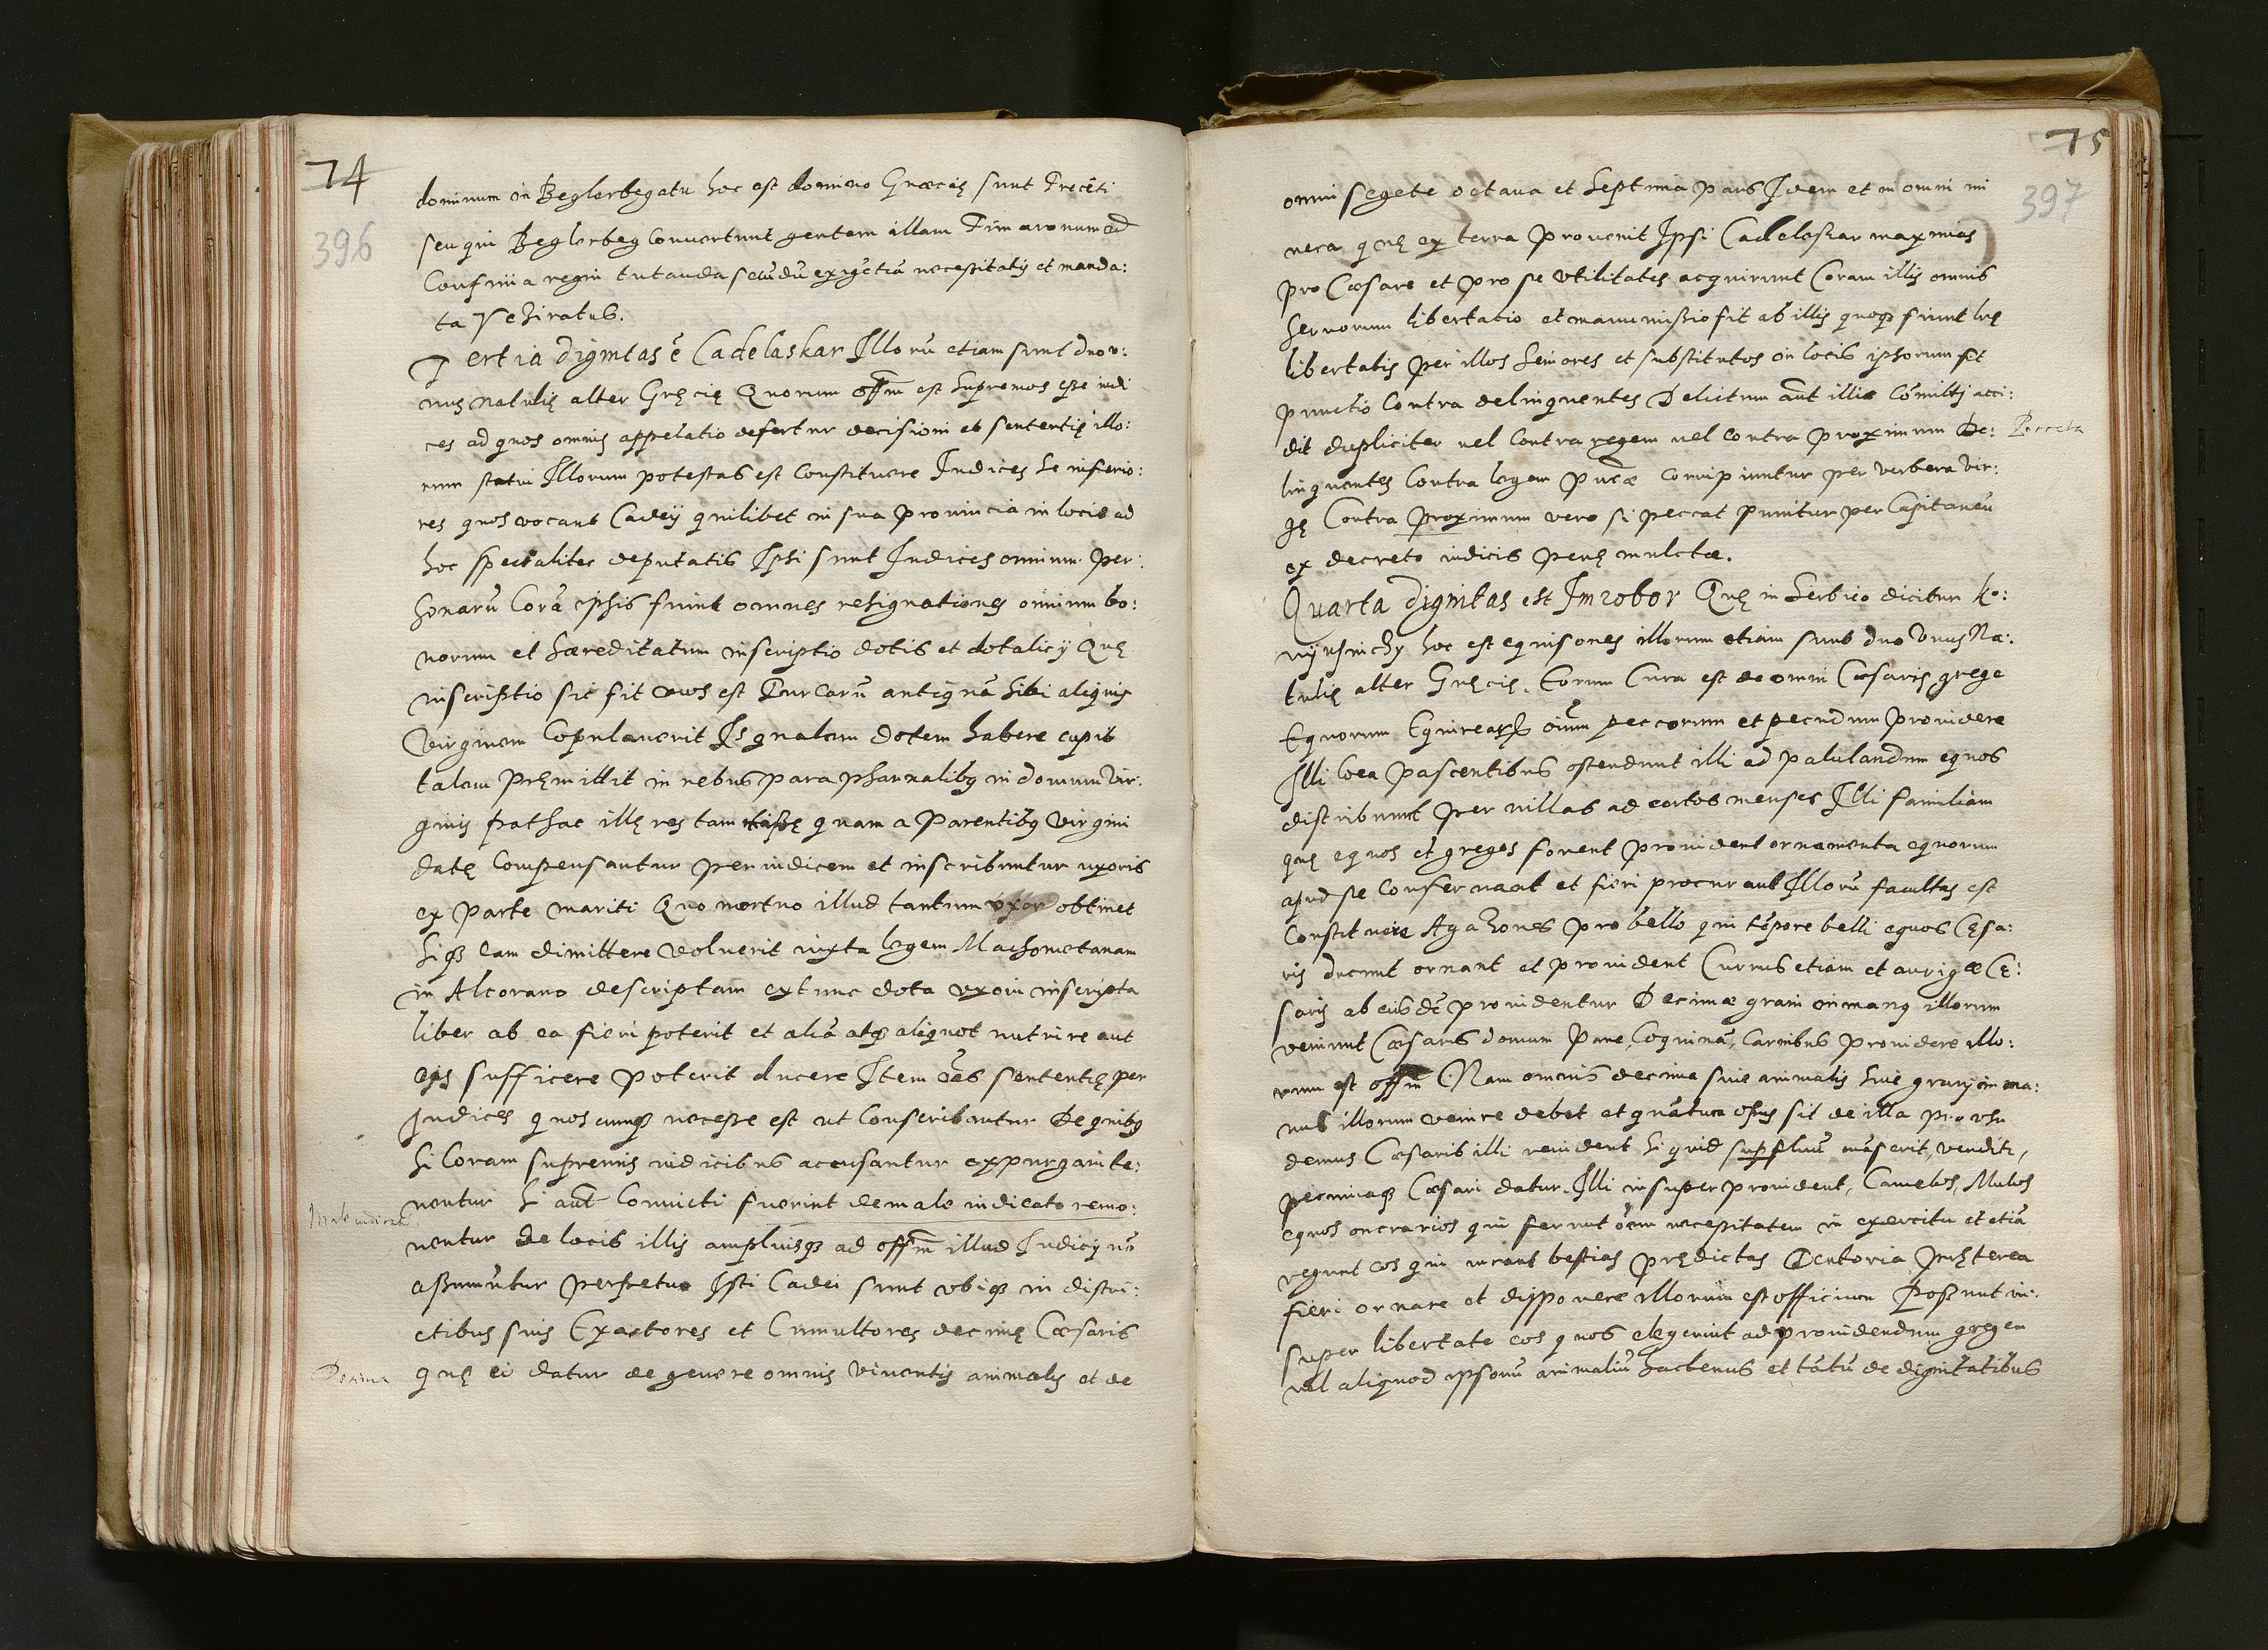 74
396
dominum in Beglerbegatu hoc est dominio Græcię sunt Trecēti
seu qui Beglerbeg Convertunt gentem illam Timaronum ad
Confinia regni tutanda secūdū exigētiā necessitatis et manda:
ta Veziratus.
Tertia dignitas ē Cadelaskar Illorū etiam sunt duo v:
nus Natulię alter Gręcię Quorum offm est supremos esse iudi
ces ad quos omnis appellatio defertur decisioni et sententię illo:
rum stari Illorum potestas est Constituere Iudices se inferio:
res quos vocant Cadeÿ quilibet in sua provincia in locis ad
hoc specialiter deputatis Ipsi sunt Iudices omnium per:
sonarū Corā ipsis fiunt omnes resignationes omnium bo:
norum et hæreditatum inscriptio dotis et dotalicij Quę
inscriptio sic fit mos est Turcarū antiquā sibi aliquis
Virginem Copulaverit Is qualem dotem habere cupit
talem pręmittit in rebus paraphernalibꝫ in domum Vir:
ginis pathac illę res tam missę quam a Parentibꝫ Virgini
datę Compensantur per iudicem et inscribuntur uxoris
ex parte mariti Quo mortuo illud tantum uxor obtinet
siqꝫ eam dimittere voluerit iuxta legem Machometanam
in Alcorano descriptam extunc dota uxori inscripta
liber ab ea fieri poterit et aliā atqꝫ aliquot nutrire aut
eis sufficere poterit ducere Item oēs sententię per
Iudices quoscunqꝫ necesse est ut Conscribantur De quibꝫ
si Coram supremis iudicibus accusantur expurgari te:
nentur si aūt Convicti fuerint de male iudicato remo:
ventur de locis illis ampliusqꝫ ad offm illud Iudicij nō
assumūtur perpetuo Isti Cadei sunt ubiqꝫ in distri:
ctibus suis Exactores et Cumultores decimę Cæsaris
Decima
quę ei datur de genere omnis viventis animalis et de
75
397
omni segete octava et septima pars Idem et in omni mi
nera quę ex terra provenit Ipsi Cadelaskar maximas
pro Cæsare et pro se utilitates acquirunt Coram illis omnis
servorum libertatio et manumissio fit ab illis quoqꝫ fiunt lrę
libertatis per illos seniores et substitutos in locis ipsorum fit
punctio Contra delinquentes Delictum aūt illic Cōmitti acci:
dit dupliciter vel Contra regem vel contra proximum De:
Peccata
linquentes Contra legem puæ corripiuntur per verbera vir:
gę Contra proximum vero si peccat punitur per Capitaneū
ex decreto iudicis penę mulctæ.
Quarta dignitas est Imrobor Quę in Serbico dicitur Ko:
nÿusinchÿ hoc est equisones illorum etiam sunt duo Unus Na:
tulię alter Gręcię. Eorum Cura est de omni Cæsaris grege
Equorum Equirearꝫ oium peccorum et pecudum providere
Illi loca pascentibus ostendunt illi ad pabulandum equos
distribuunt per villas ad certos menses Illi familiam
quę equos et greges fovent provident ornamenta equorum
apud se Conservant et fieri procurant Illorū facultas est
Constituere Agazones pro bello qui tēpore belli equos Cęsa:
ris ducunt ornant et provident Currus etiam et aurigæ Cę:
saris ab eisdē providentur Decimæ grani in manꝫ illorum
veniunt Cæsaris domum Pane, Coquinā, Carnibus providere illo:
rum est offm Nam omnis decima sive animalis sive granj in ma:
nus illorum venire debet et quātum opus sit de illa pro usu
domus Cæsaris illi vendent si quid supfluū māserit, venditi,
pecuniaqꝫ Cæsari datur. Illi insuper provident, Camelos, Mulos
equos onerarios qui ferunt oēm necessitatem in exercitu et etiā
regunt eos qui curant bestias prędictas Tentoria pręterea
fieri ornare et disponere illorum est officium Possunt in:
super libertate eos quos elegerint ad providendum gregem
vel aliquod ipsorū animaliū hactenus et tātū de dignitatibus